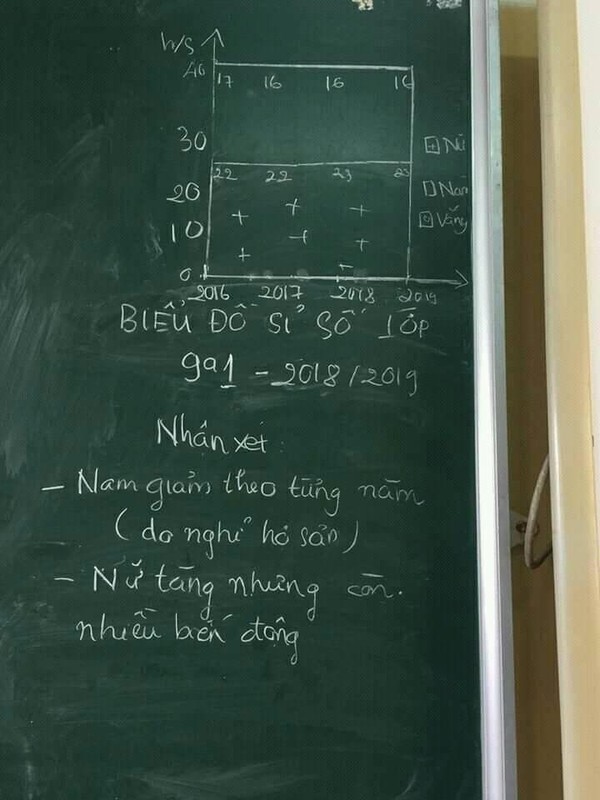 h/s
40
17 16 16 16
30
⊞ Nữ
22 22 23 23
20
Nam
10
Vắng
0
2016 2017 2018 2019
BIỂU ĐỒ SỈ SỐ LỚP
9a1 - 2018/2019
Nhận xét:
- Nam giảm theo từng năm
(do nghỉ hộ sản)
- Nữ tăng nhưng còn.
nhiều biến động